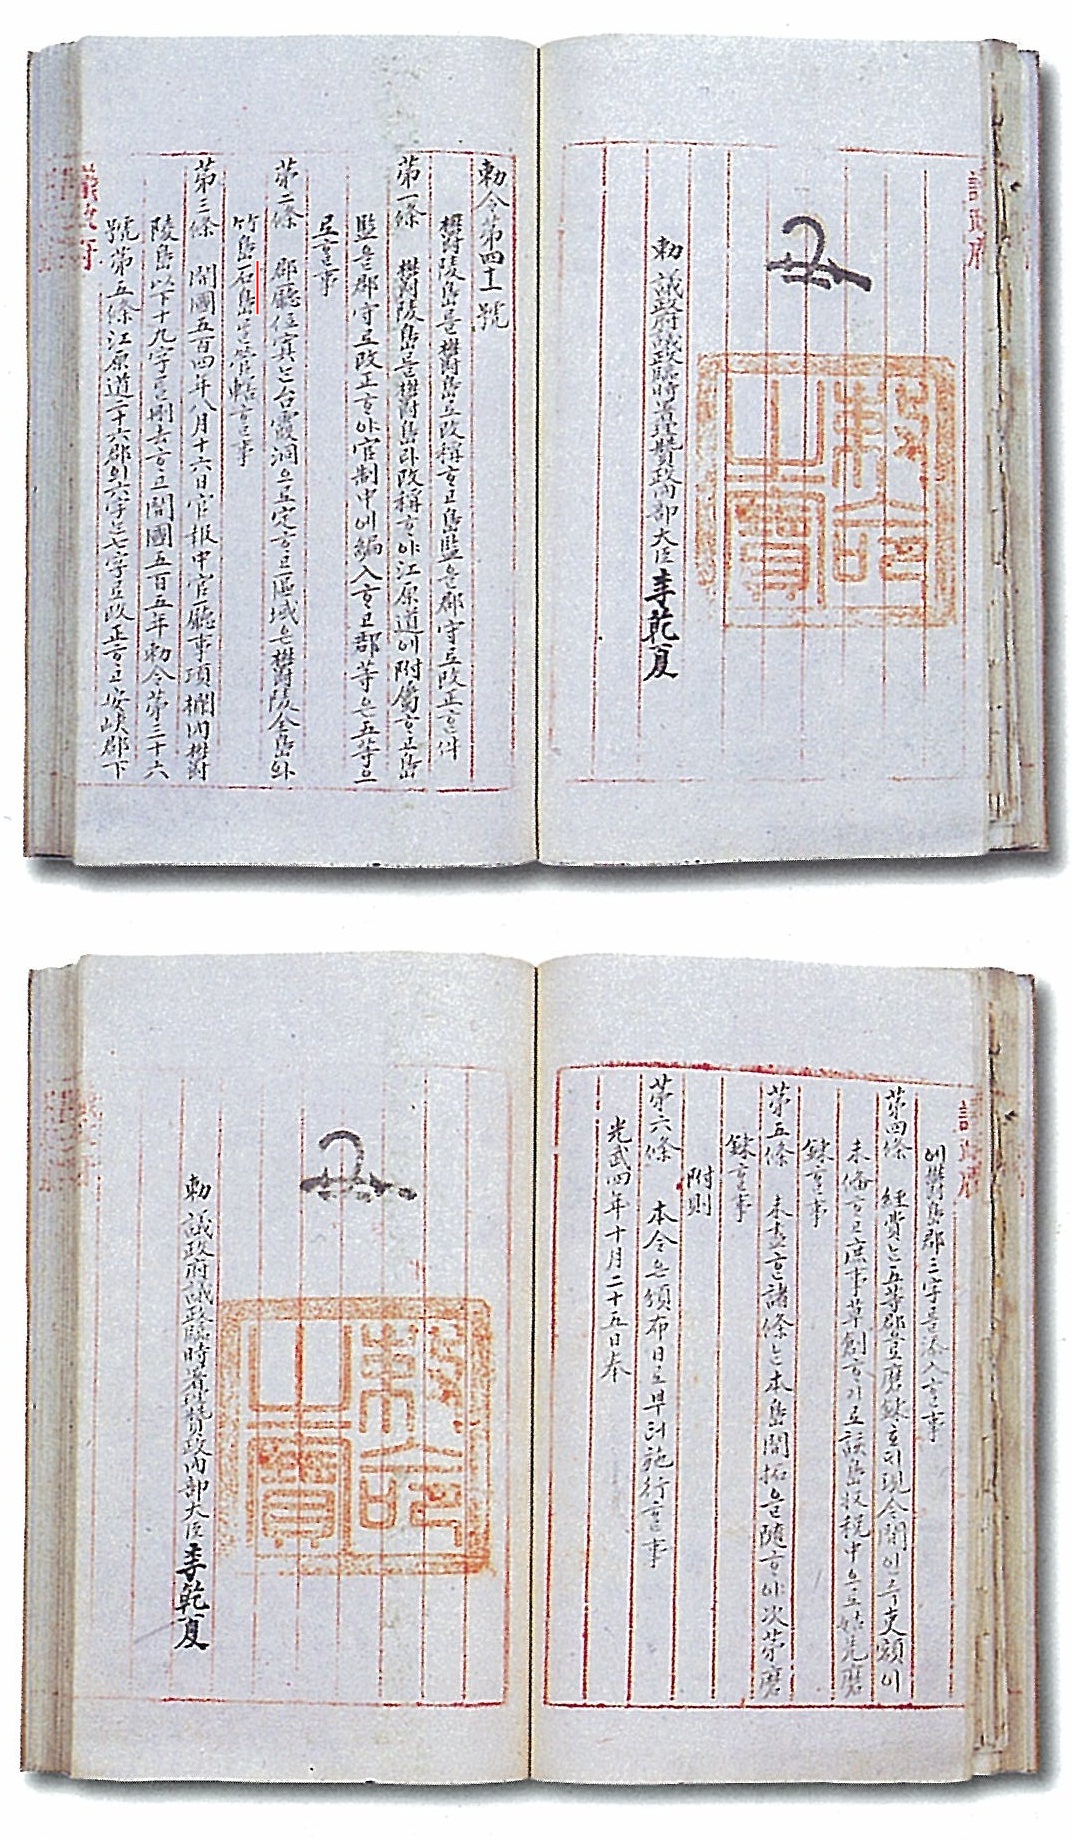 議政府
勅 議政府議政臨時署理贊政內部大臣李乾夏
勅命之寶
勅令第四十一號
鬱陵島를鬱島로改稱ᄒᆞ고島監을郡守로改正ᄒᆞᆫ件
第一條 鬱陵島를鬱島라改稱ᄒᆞ야江原道에附屬ᄒᆞ고島
監을郡守로改正ᄒᆞ야官制中에編入ᄒᆞ고郡等은五等으
로ᄒᆞᆯ事
第二條 郡廳位寘ᄂᆞᆫ台霞洞으로定ᄒᆞ고區域은鬱陵全島와
竹島石島ᄅᆞᆯ管轄ᄒᆞᆯ事
第三條 開國五百四年八月十六日官報中官廳事項欄內鬱
陵島以下十九字ᄅᆞᆯ刪去ᄒᆞ고開國五百五年勅令第三十六
號第五條江原道二十六郡의六字ᄂᆞᆫ七字로改正ᄒᆞ고安峽郡下
議政府
議政府
에鬱島郡三字ᄅᆞᆯ添入ᄒᆞᆯ事
第四條 經費ᄂᆞᆫ五等郡으로磨鍊호되現今間인즉吏額이
未備ᄒᆞ고庶事草創ᄒᆞ기로該島收稅中으로姑先磨
鍊ᄒᆞᆯ事
第五條 未盡ᄒᆞᆫ諸條ᄂᆞᆫ本島開拓을隨ᄒᆞ야次第磨
鍊ᄒᆞᆯ事
附則
第六條 本令은頒布日로부터施行ᄒᆞᆯ事
光武四年十月二十五日奉
勅 議政府議政臨時署理贊政內部大臣李乾夏
勅命之寶